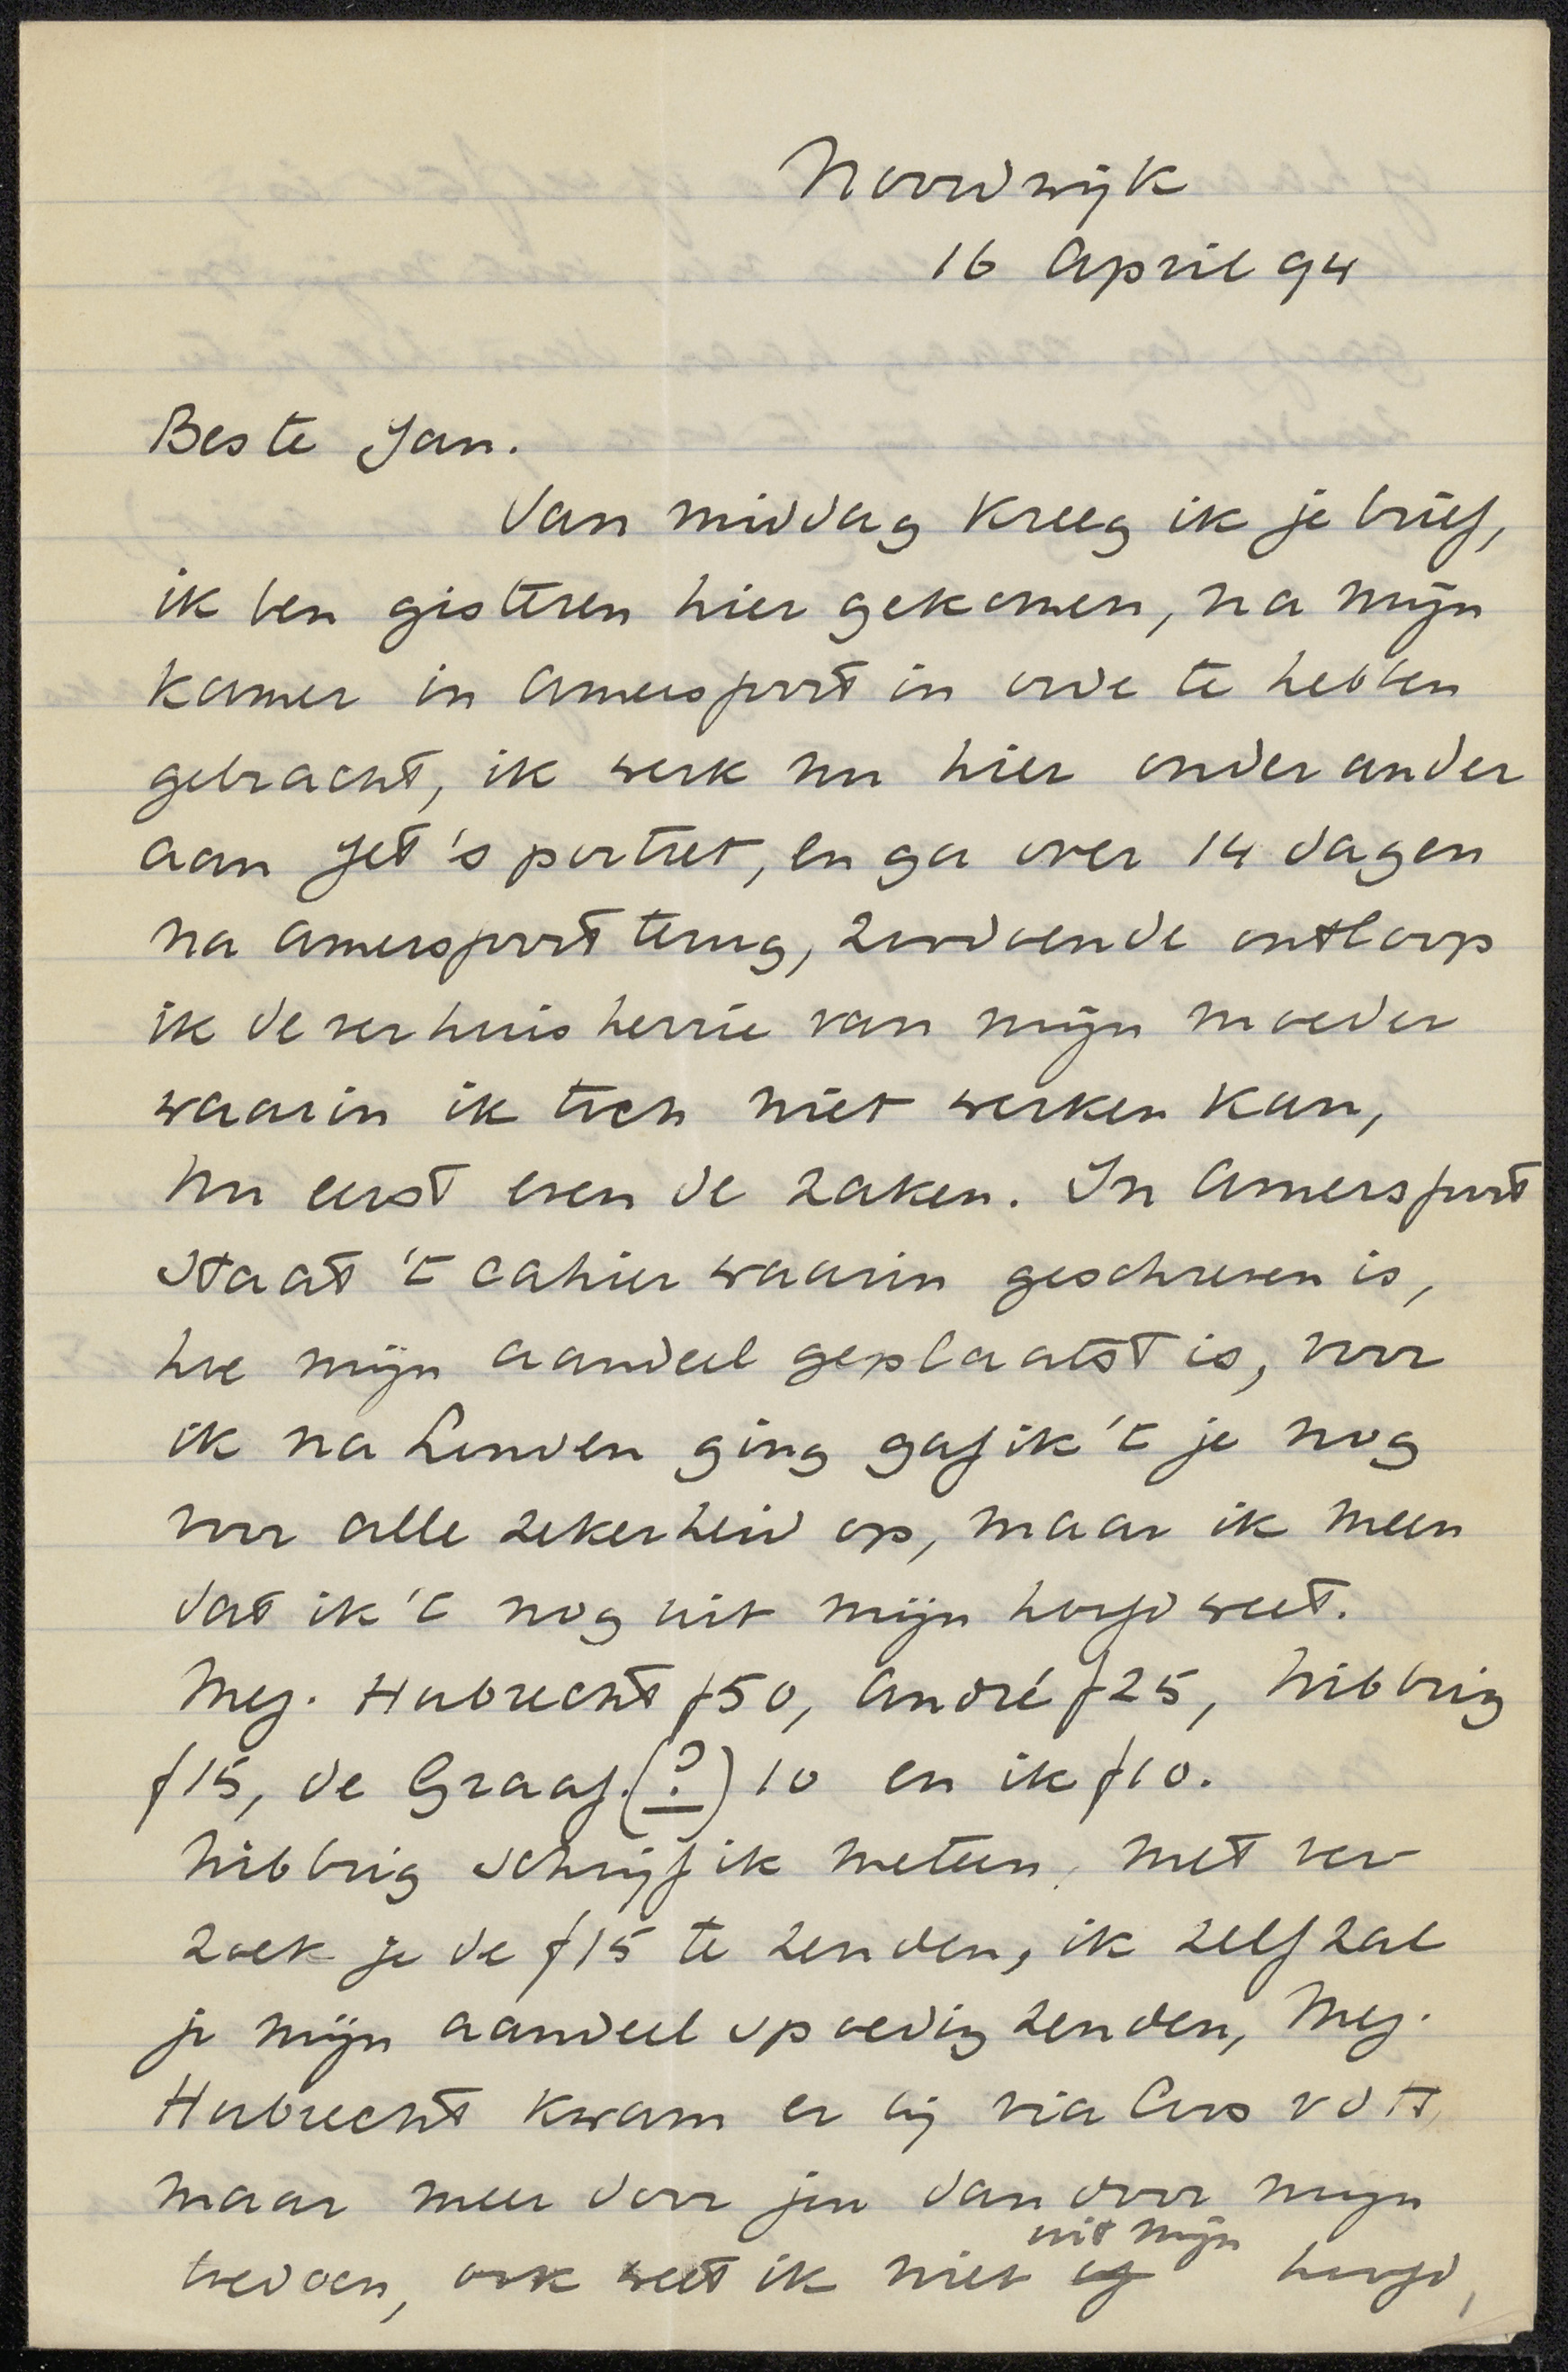 Noordwijk
16 April 94
Beste Jan.
Van middag kreeg ik je brief,
ik ben gisteren hier gekomen, na mijn
kamer in Amersfoort in orde te hebben
gebracht, ik werk nu hier onder ander
aan Jet's portret, en ga over 14 dagen
na Amersfoort terug, zoodoende ontloop
ik de verhuisherrie van mijn moeder
waarin ik toch niet werken kan,
Nu eerst even de zaken. In Amersfoort
staat 't cahier waarin geschreven is,
hoe mijn aandeel geplaatst is, voor
ik na Londen ging gaf ik 't je nog
voor alle zekerheid op, maar ik meen
dat ik 't nog uit mijn hoofd weet.
Mej. Hubrecht f50, André f25, Nibbrig
f15, de Graaf. (?) 10 en ik f10.
Nibbrig schrijf ik meteen, met ver
zoek je de f15 te zenden, ik zelf zal
je mijn aandeel spoedig zenden, Mej.
Hubrecht kwam er bij via Cos
maar meer door jou dan door mijn
toedoen, ook weet ik niet uit mijn hoofd,